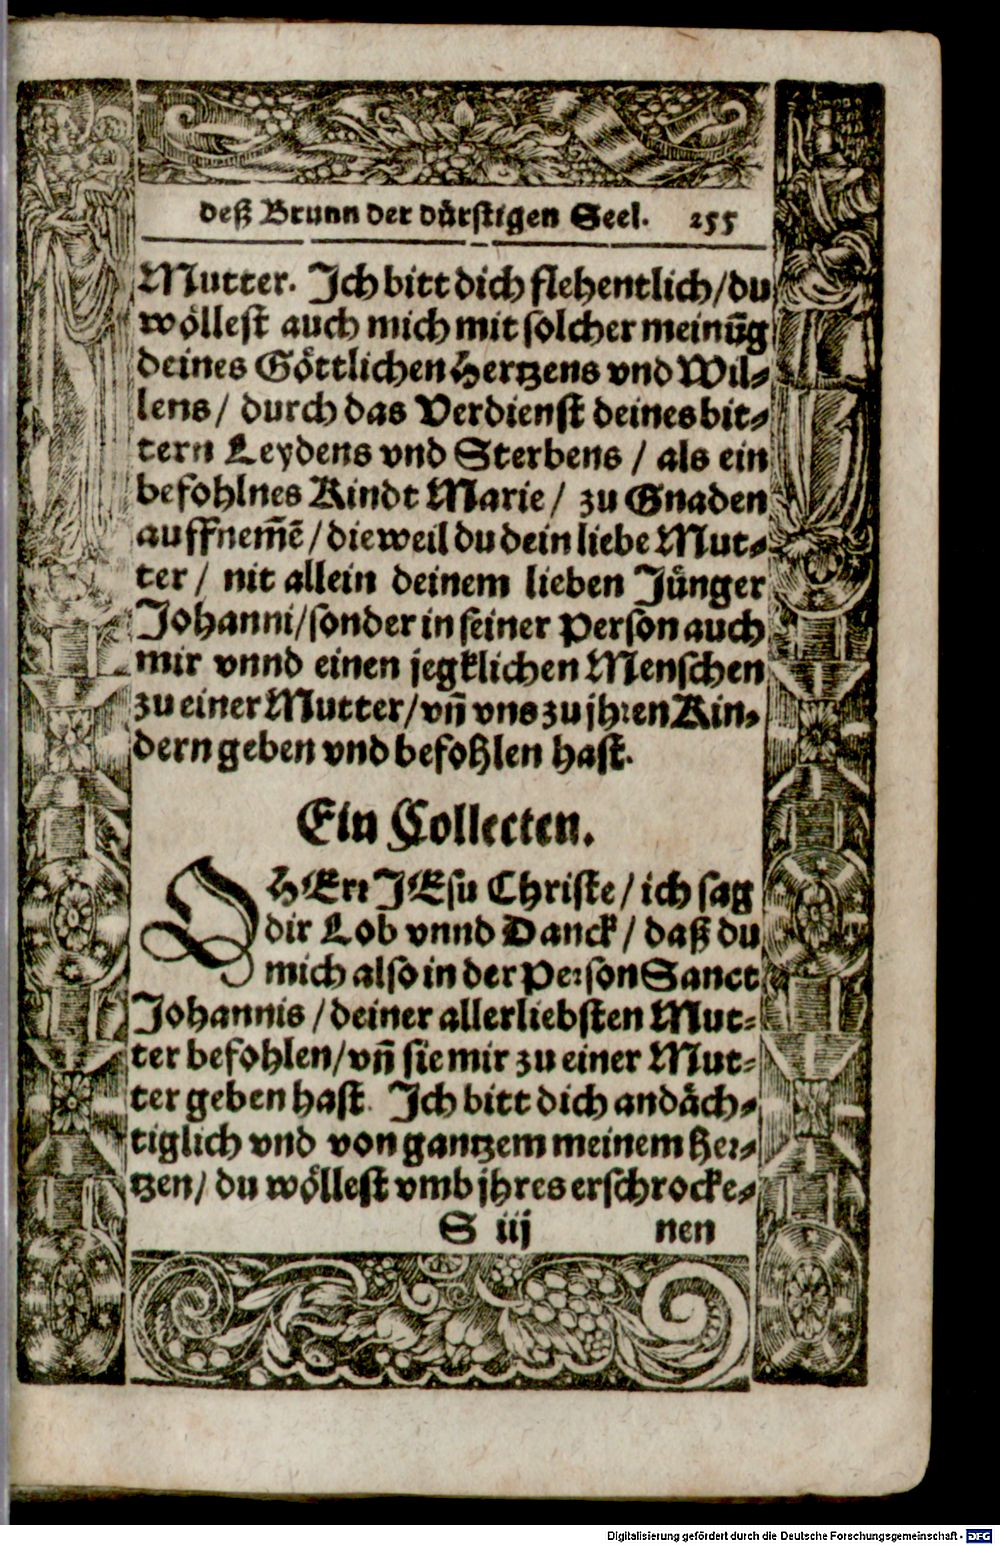 deß Brunn der dürstigen Seel. 255
Mutter. Ich bitt dich flehentlich/du
wöllest auch mich mit solcher meinūg
deines Göttlichen Hertzens vnd Wil⸗
lens/ durch das Verdienst deines bit⸗
tern Leydens vnd Sterbens / als ein
befohlnes Kindt Marie/ zu Gnaden
auffnem̄ē/dieweil du dein liebe Mut⸗
ter / nit allein deinem lieben Jünger
Johanni/sonder in seiner Person auch
mir vnnd einen jegklichen Menschen
zu einer Mutter/vn̄ vns zu jhren Kin⸗
dern geben vnd befohlen hast.
Ein Collecten.
O HErr JEsu Christe/ich sag
dir Lob vnnd Danck/ daß du
mich also in der Person Sanct
Johannis /deiner allerliebsten Mut⸗
ter befohlen/vn̄ sie mir zu einer Mut⸗
ter geben hast. Ich bitt dich andäch⸗
tiglich vnd von gantzem meinem Her⸗
tzen/ du wöllest vmb jhres erschrocke⸗
S iij nen
Digitalisierung gefördert durch die Deutsche Forschungsgemeinschaft - DFG